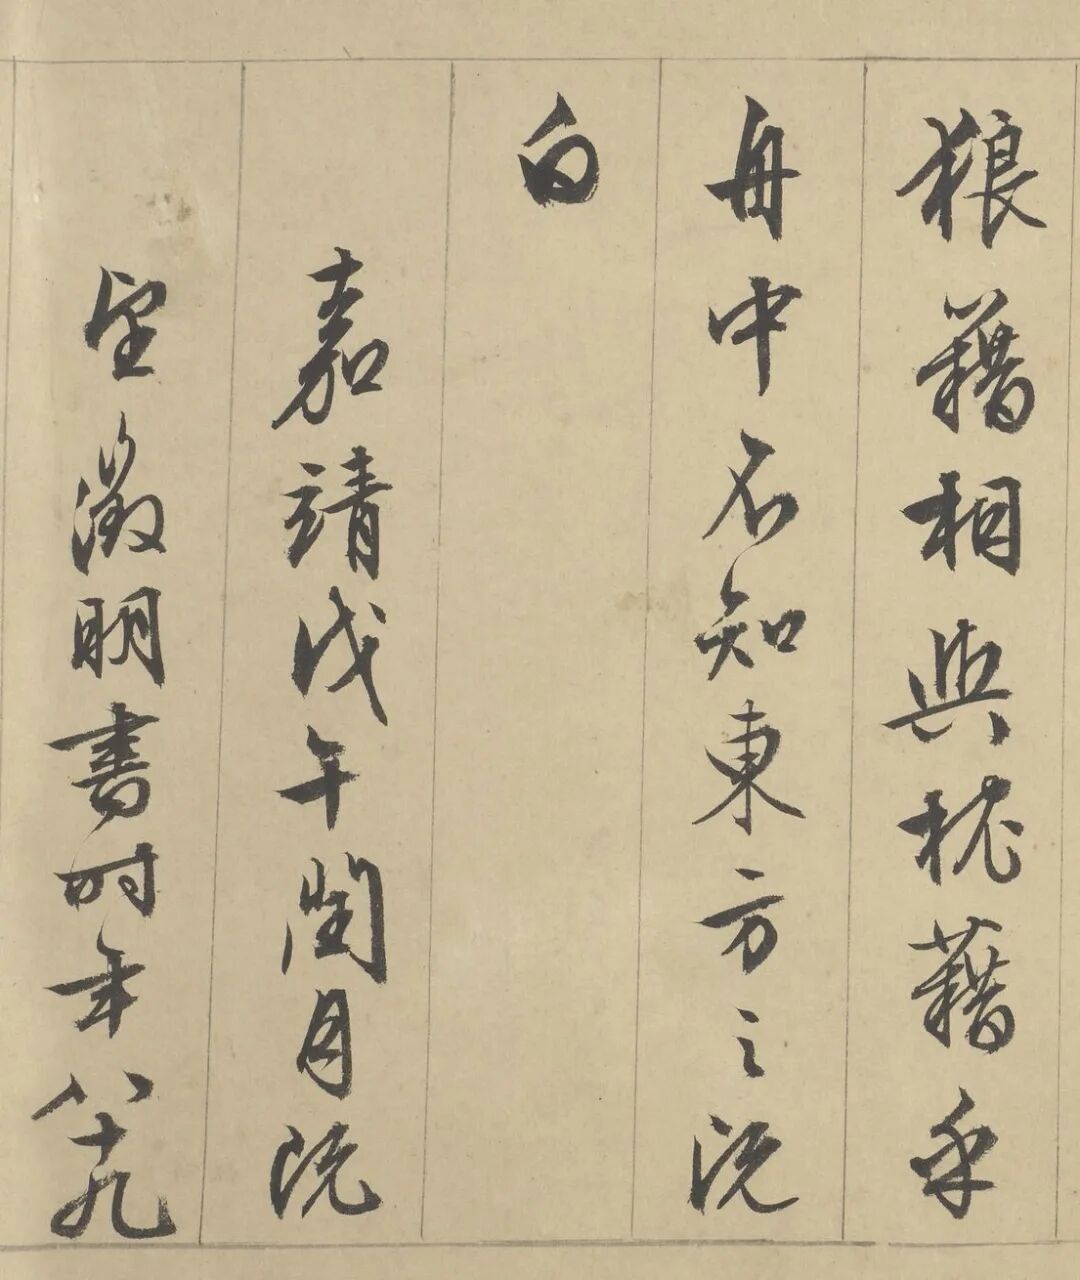 狼藉相與枕藉乎
舟中不知東方之既
白
嘉靖戊午閏月既
望徵明書時年八十九